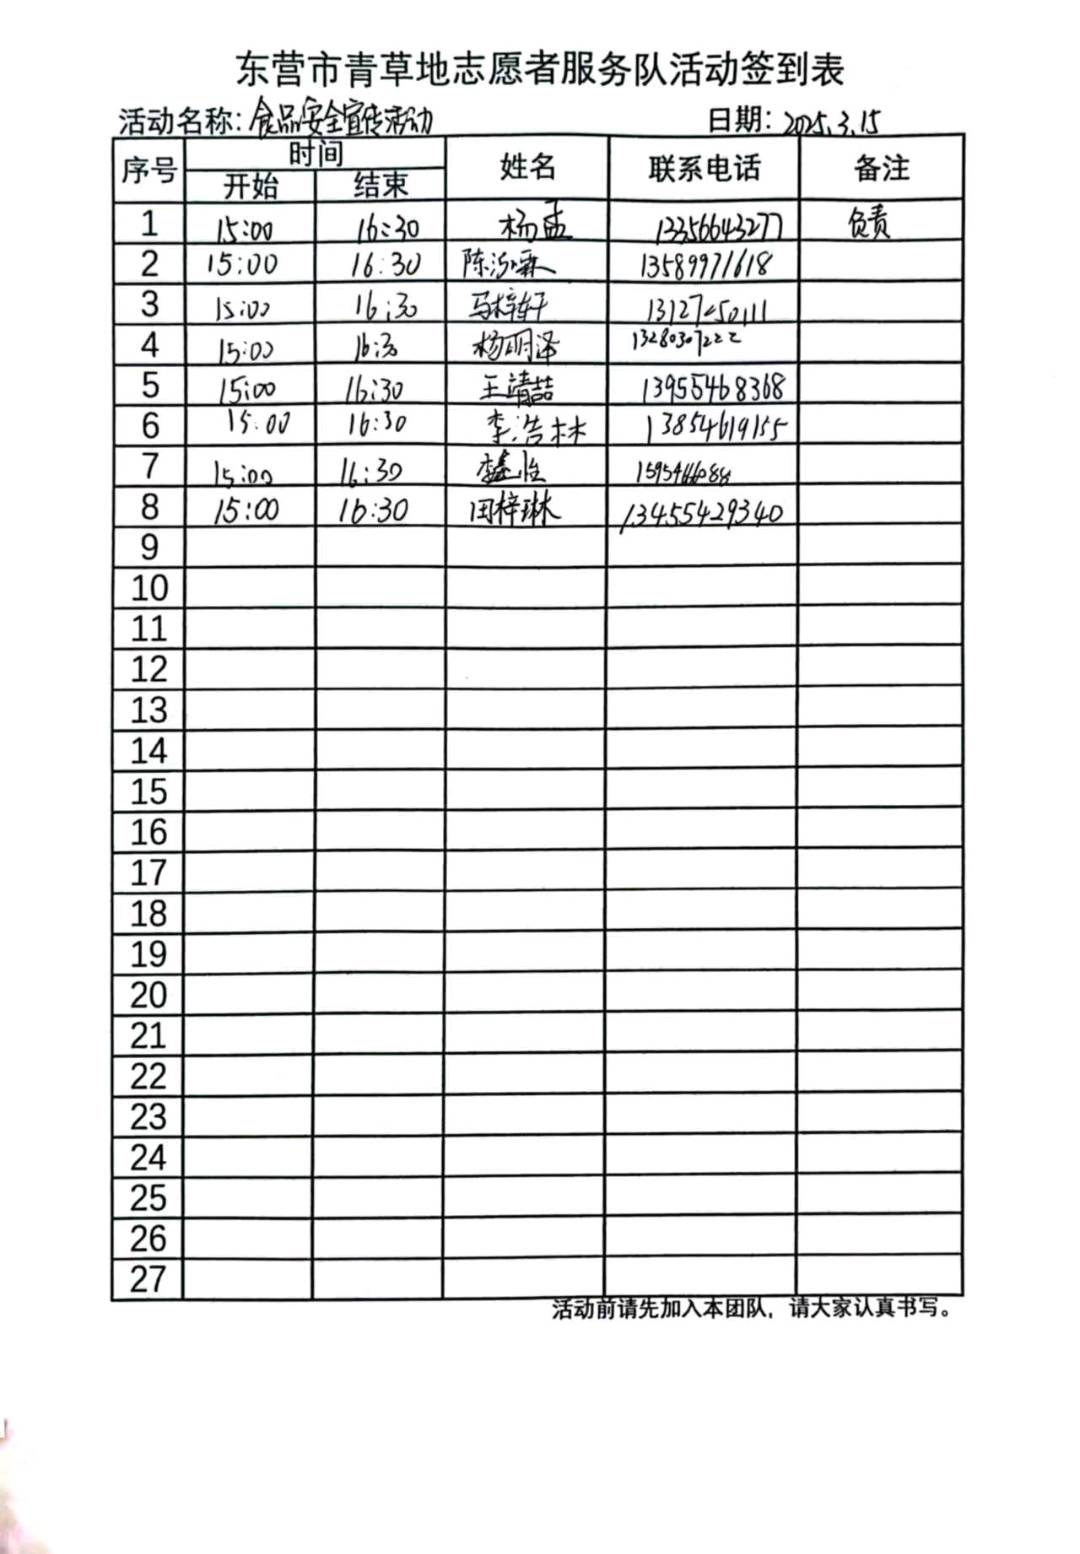 东营市青草地志愿者服务队活动签到表
活动名称：食品安全宣传活动 日期：2025.3.15
序号 时间 姓名 联系电话 备注
开始 结束
1 15:00 16:30 杨孟 13356643277 负责
2 15:00 16:30 陈汐霖 13589971618
3 15:00 16:30 马梓轩
4 15:00 16:30 杨明泽 13280307222
5 15:00 16:30 王靖喆 13955468368
6 15:00 16:30 李浩林 13854619155
7 15:00 16:30
8 15:00 16:30 田梓琳 13455429340
9
10
11
12
13
14
15
16
17
18
19
20
21
22
23
24
25
26
27
活动前请先加入本团队，请大家认真书写。